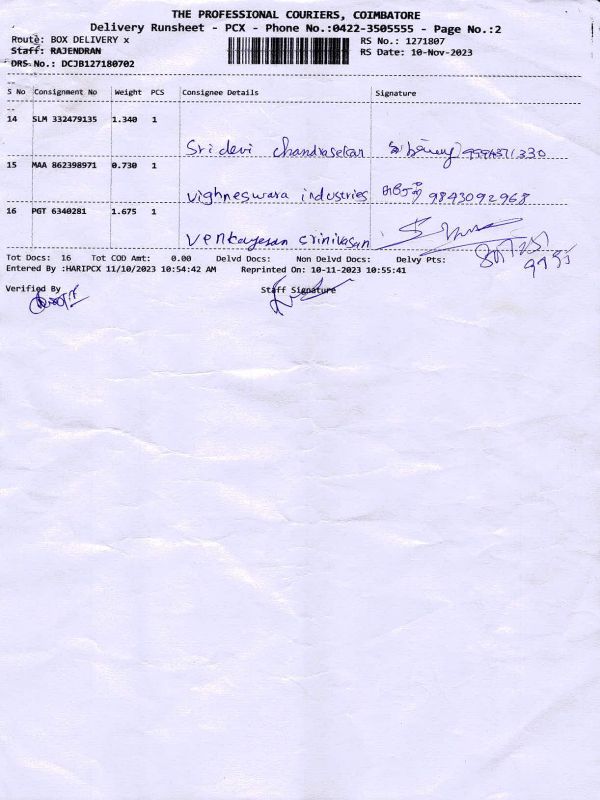 THE PROFESSIONAL COURIERS, COIMBATORE
Delivery Runsheet - PCX - Phone No.:0422-3505555 - Page No.:2
Route: BOX DELIVERY x RS No.: 1271807
Staff: RAJENDRAN RS Date: 10-Nov-2023
DRS No.: DCJB127180702
S No Consignment No Weight PCS Consignee Details Signature
14 SLM 332479135 1.340 1
Sridevi Chandrasekan
15 MAA 862398971 0.730 1
Vighneswara industries 9843092968
16 PGT 6340281 1.675 1
Venkayesan Srinivasan
Tot Docs: 16 Tot COD Amt: 0.00 Delvd Docs: Non Delvd Docs: Delvy Pts:
Entered By :HARIPCX 11/10/2023 10:54:42 AM Reprinted On: 10-11-2023 10:55:41
Verified By Staff Signature